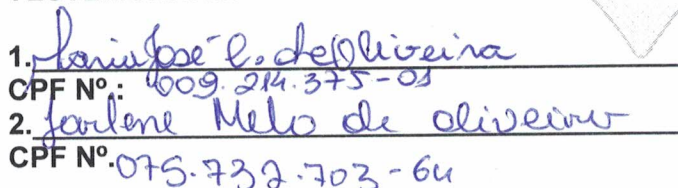 1. Maria José C. de Oliveira
CPF Nº.: 009.214.375-01
2. Jarlene Melo de oliveira
CPF Nº. 075.732.703-64